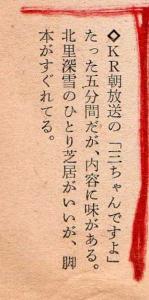 ◇KR朝放送の「三ちゃんですよ」
たった五分間だが、内容に味がある。
北里深雪のひとり芝居がいいが、脚
本がすぐれてる。